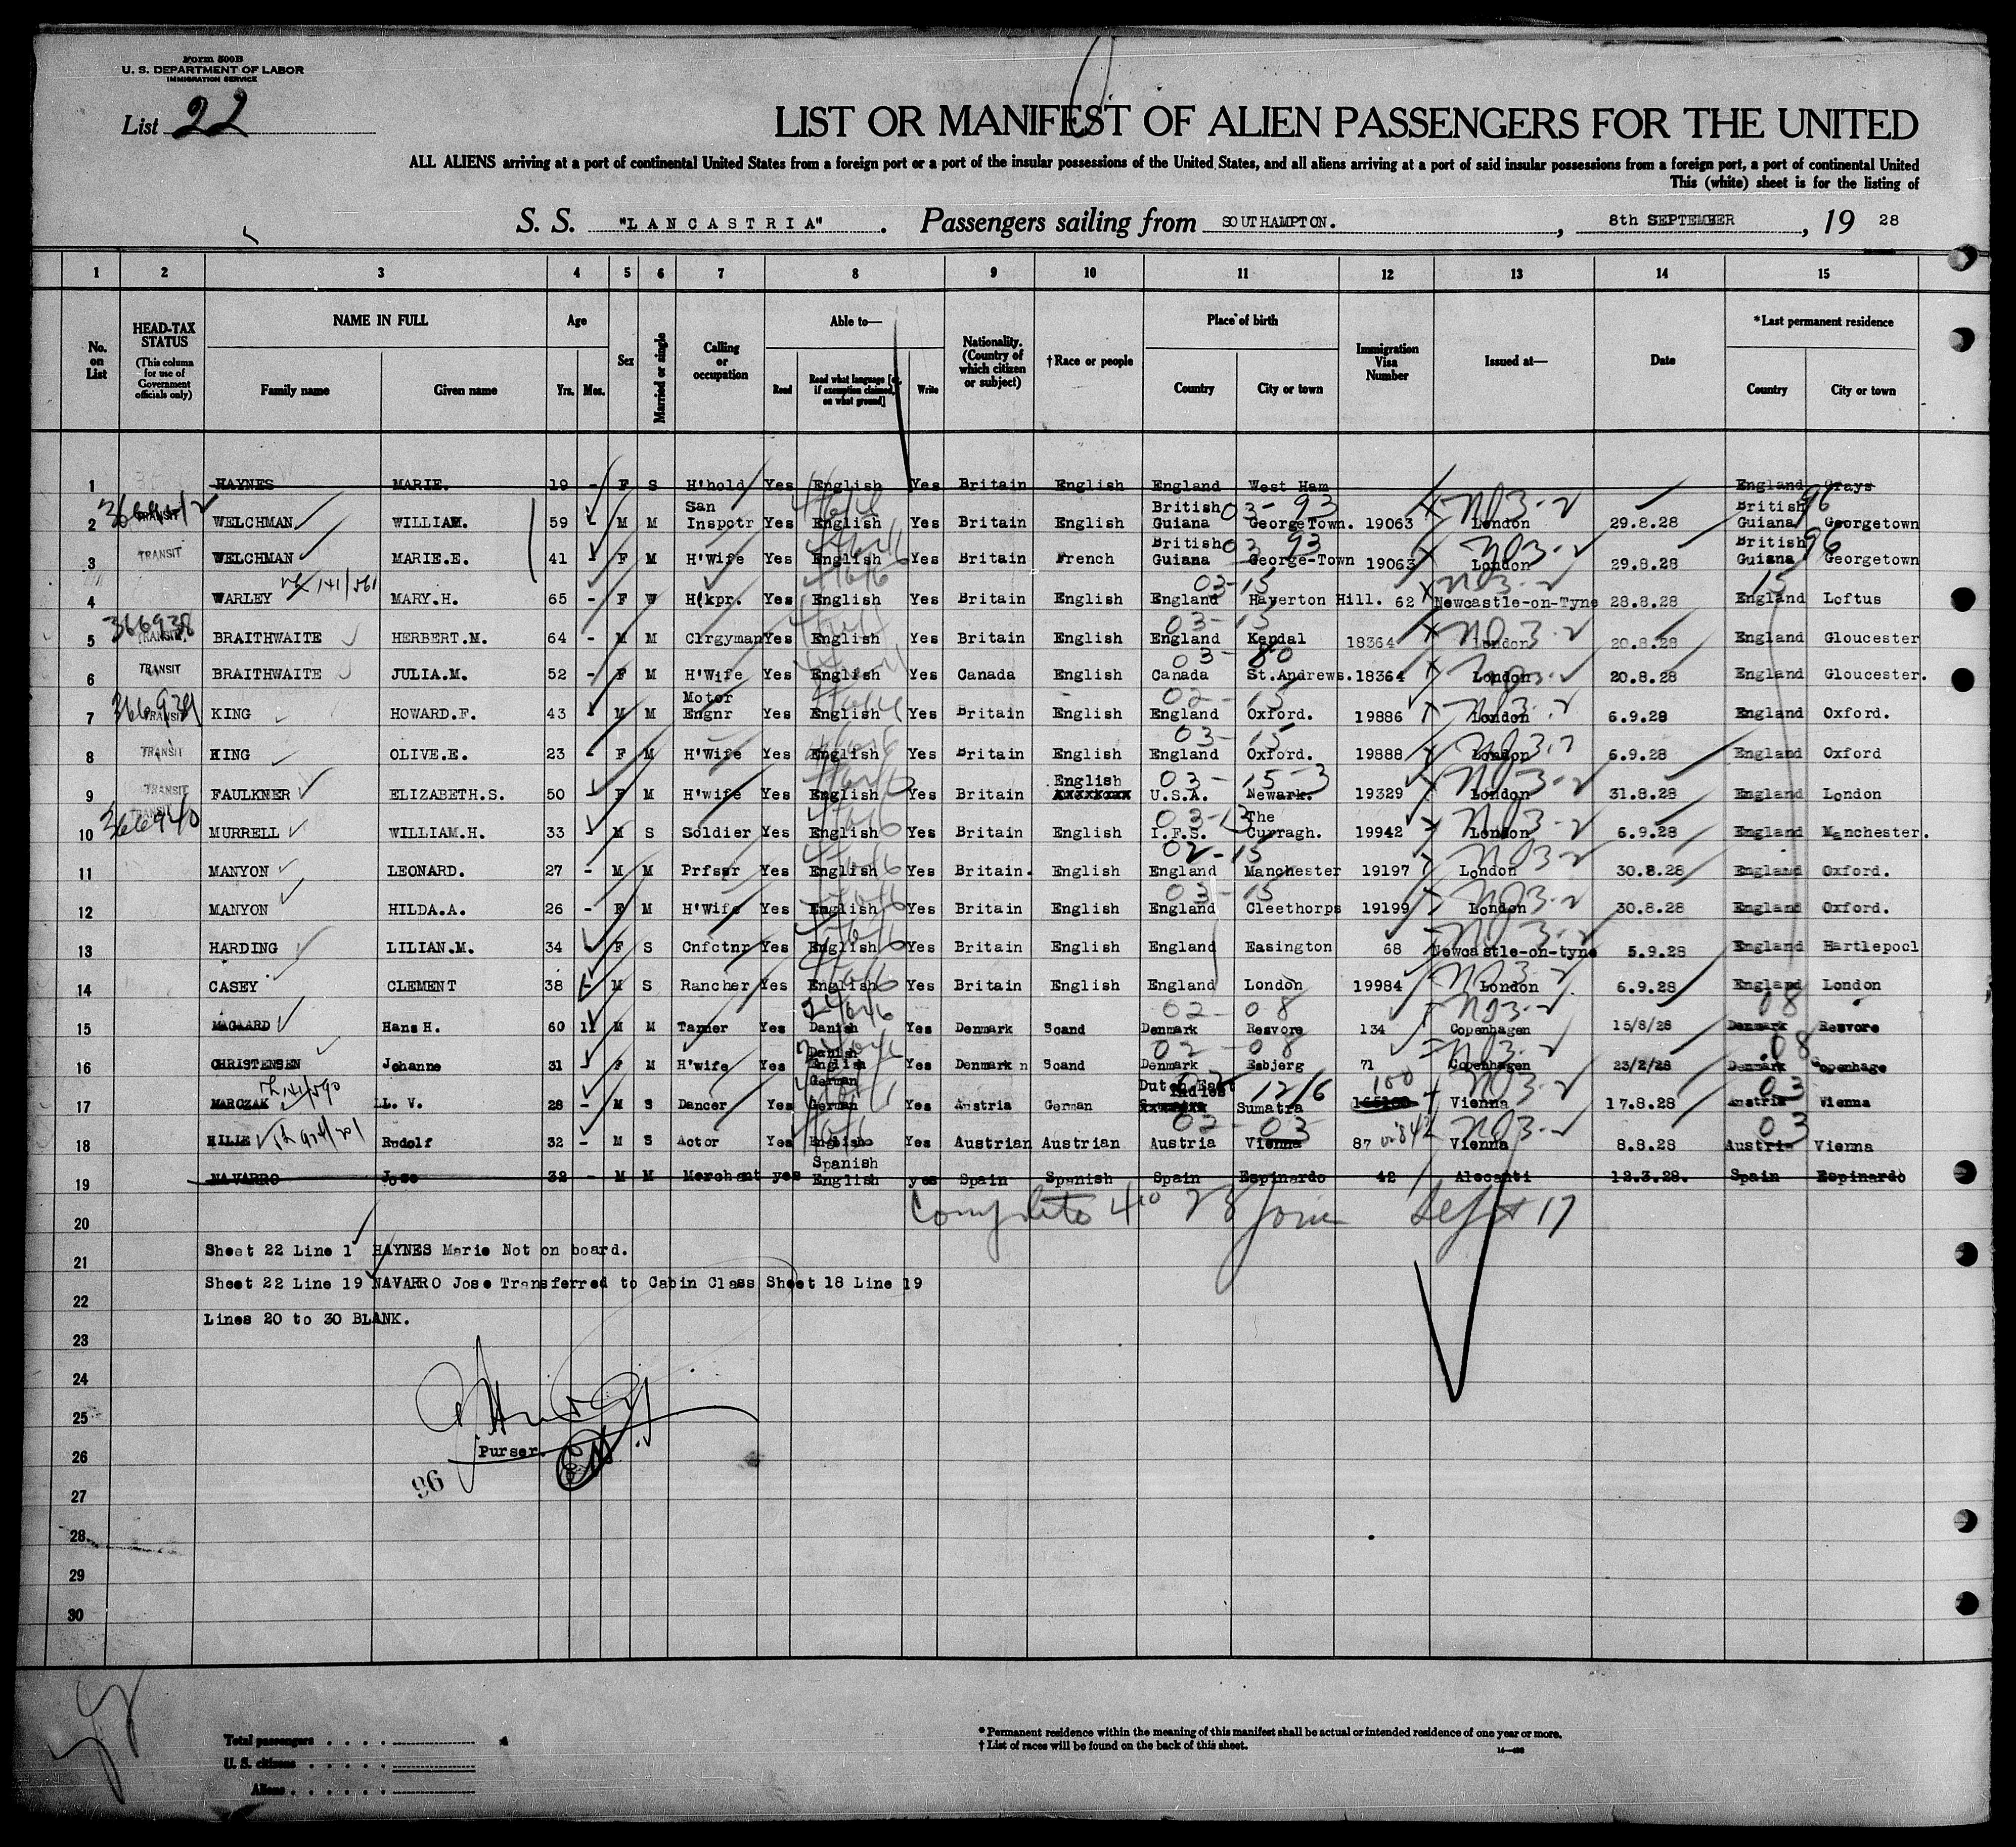 Form 500B
U. S. DEPARTMENT OF LABOR
IMMIGRATION SERVICE
List 22
LIST OR MANIFEST OF ALIEN PASSENGERS FOR THE UNITED
ALL ALIENS arriving at a port of continental United States from a foreign port or a port of the insular possessions of the United States, and all aliens arriving at a port of said insular possessions from a foreign port, a port of continental United
This (white) sheet is for the listing of
S. S. "LANCASTRIA" . Passengers sailing from SOUTHAMPTON. , 8th SEPTEMBER , 19 28
1 2 3 4 5 6 7 8 9 10 11 12 13 14 15
No. on List
HEAD-TAX STATUS (This column for use of Government officials only)
NAME IN FULL Family name Given name
Age Yrs. Mos.
Sex
Married or single
Calling or occupation
Able to— Read Read what language [or, if exemption claimed, on what ground] Write
Nationality. (Country of which citizen or subject)
†Race or people
Place of birth Country City or town
Immigration Visa Number
Issued at—
Date
*Last permanent residence Country City or town
1 HAYNES MARIE. 19 - F S H'hold Yes English Yes Britain English England West Ham England Grays
2 366942 TRANSIT WELCHMAN WILLIAM. 59 - M M San Inspctr Yes English Yes Britain English British Guiana 03-93 GeorgeTown. 19063 London 29.8.28 British Guiana 96 Georgetown
3 TRANSIT WELCHMAN MARIE.E. 41 - F M H'Wife Yes English Yes Britain French British Guiana 03 93 George-Town 19063 London 29.8.28 British Guiana 96 Georgetown
4 WARLEY 141/561 MARY.H. 65 - F W H'kpr. Yes English Yes Britain English England 03-15 Haverton Hill. 62 Newcastle-on-Tyne 28.8.28 England 15 Loftus
5 366938 TRANSIT BRAITHWAITE HERBERT.M. 64 - M M Clrgyman Yes English Yes Britain English England 03-15 Kendal 18364 London 20.8.28 England Gloucester
6 TRANSIT BRAITHWAITE JULIA.M. 52 - F M H'Wife Yes English Yes Canada English Canada 03-80 St.Andrews. 18364 London 20.8.28 England Gloucester.
7 366939 TRANSIT KING HOWARD.F. 43 - M M Motor Engnr Yes English Yes Britain English England 02-15 Oxford. 19886 London 6.9.28 England Oxford.
8 TRANSIT KING OLIVE.E. 23 - F M H'Wife Yes English Yes Britain English England 03-15 Oxford. 19888 London 6.9.28 England Oxford
9 TRANSIT FAULKNER ELIZABETH.S. 50 - F M H'wife Yes English Yes Britain English xxxxxxxx U.S.A. 03-15-3 Newark. 19329 London 31.8.28 England London
10 366940 TRANSIT MURRELL WILLIAM.H. 33 - M S Soldier Yes English Yes Britain English I.F.S. 03-13 The Curragh. 19942 London 6.9.28 England Manchester.
11 MANYON LEONARD. 27 - M M Prfssr Yes English Yes Britain. English England 02-15 Manchester 19197 London 30.8.28 England Oxford.
12 MANYON HILDA.A. 26 - F M H'Wife Yes English Yes Britain English England 03-15 Cleethorps 19199 London 30.8.28 England Oxford.
13 HARDING LILIAN.M. 34 F S Cnfctnr Yes English Yes Britain English England Easington 68 Newcastle-on-tyne 5.9.28 England Hartlepool
14 CASEY CLEMENT 38 - M S Rancher Yes English Yes Britain English England London 19984 London 6.9.28 England London
15 MAGAARD Hans H. 60 11 M M Tanner Yes Danish Yes Denmark Scand Denmark 02-08 Resvore 134 Copenhagen 15/8/28 Denmark 08 Resvore
16 CHRISTENSEN Johanne 31 F M H'wife Yes Danish English Yes Denmark n Scand Denmark 02-08 Esbjerg 71 Copenhagen 23/2/28 Denmark 08 Copenhage
17 MARCZAK 141/590 LL. V. 28 - M S Dancer Yes German German Yes Austria German Dutch East Indies 12/6 Sumatra 100 Vienna 17.8.28 Austria 03 Vienna
18 HILIE Rudolf 32 - M S Actor Yes English Yes Austrian Austrian Austria 02-03 Vienna 87 Vienna 8.8.28 Austria 03 Vienna
19 NAVARRO Jose 32 - M M Merchant yes Spanish English yes Spain Spanish Spain Espinardo 42 Alecanti 12.3.28. Spain Espinardo
20
21
22
23
24
25
26
27
28
29
30
Complete 410 Sept 17
Sheet 22 Line 1 HAYNES Marie Not on board.
Sheet 22 Line 19 NAVARRO Jose Transferred to Cabin Class Sheet 18 Line 19
Lines 20 to 30 BLANK.
Purser.
96
Total passengers
U. S. citizens
Aliens
* Permanent residence within the meaning of this manifest shall be actual or intended residence of one year or more.
† List of races will be found on the back of this sheet.